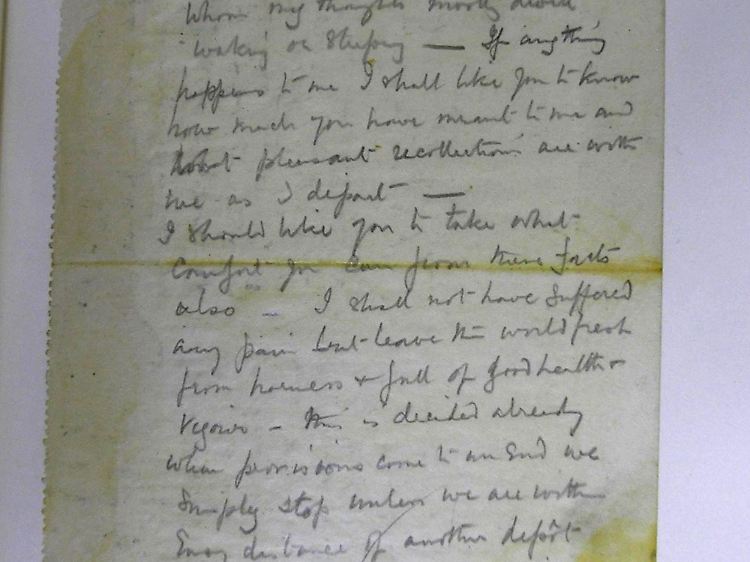 whom my thoughts mostly dwell
waking or sleeping — If anything
happens to me I shall like you to know
how much you have meant to me and
what pleasant recollections are with
me as I depart —
I should like you to take what
comfort you can from these facts
also — I shall not have suffered
any pain but leave the world fresh
from harness & full of good health &
vigour — this is decided already
when provisions come to an end we
simply stop unless we are within
easy distance of another depôt